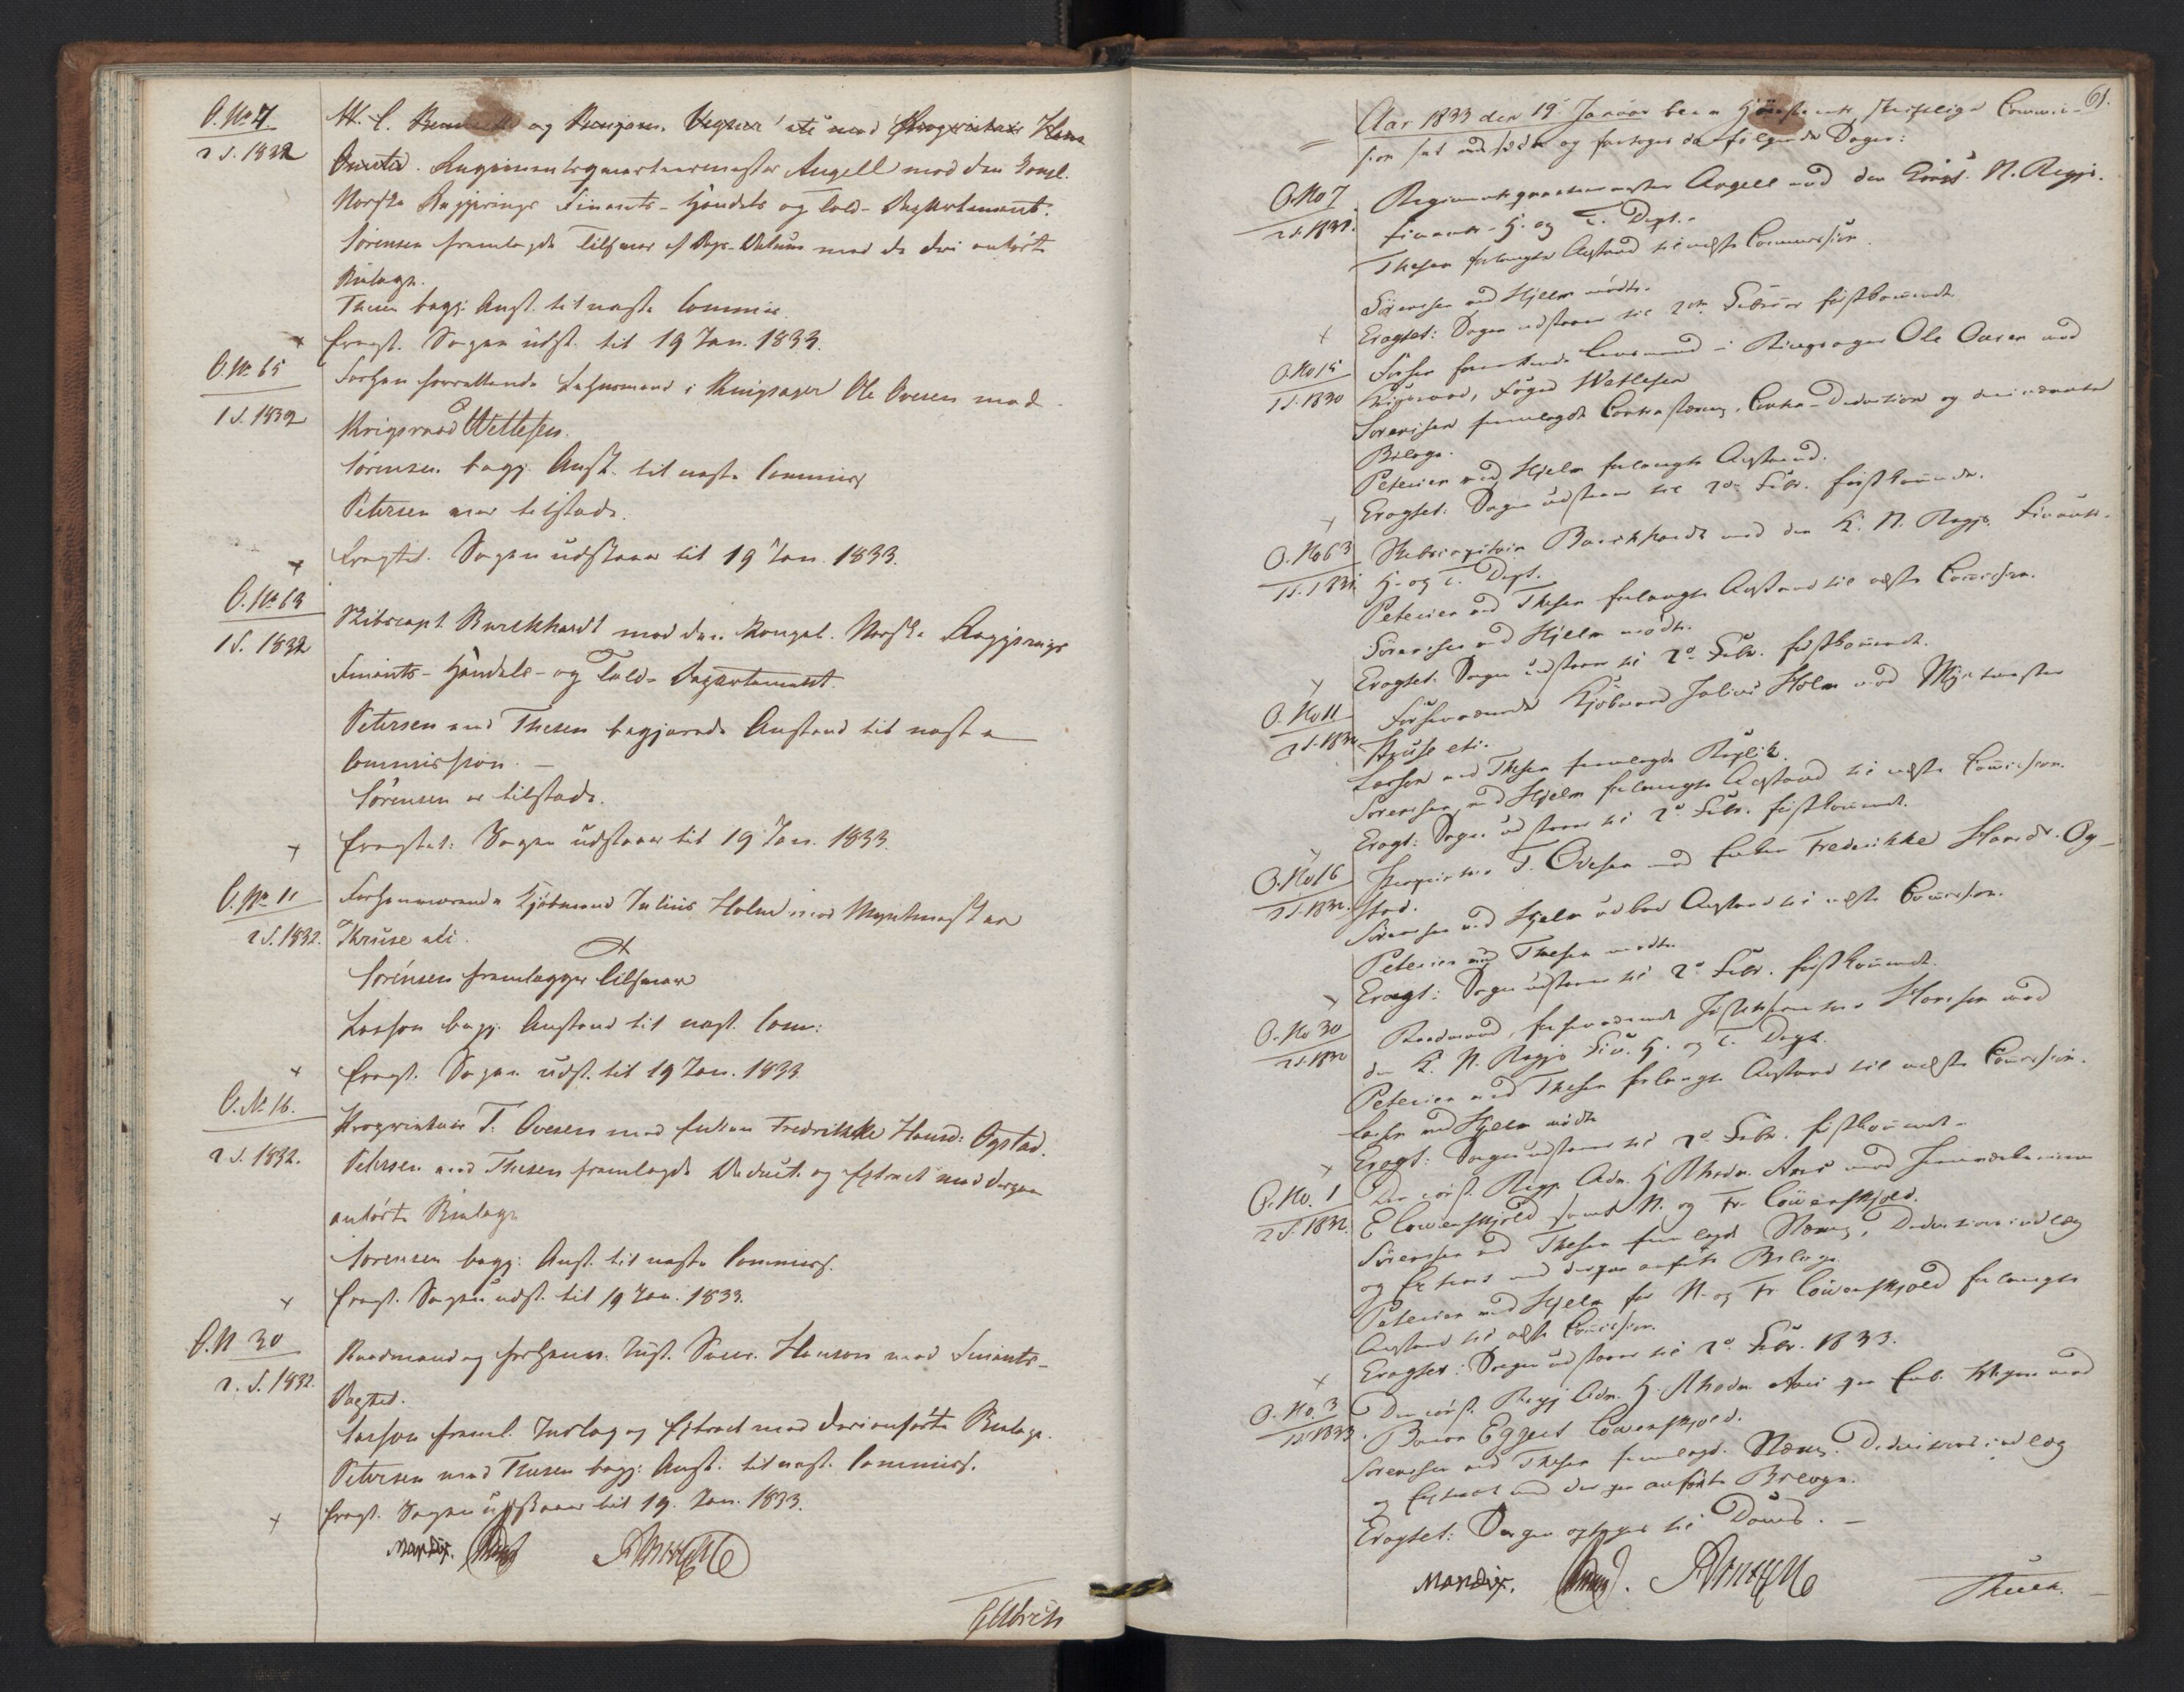 O. No 7
2 S. 1832
H. C. og Benjam. Wegner etc mod Proprietair Hans
Regimentsqvarteermester Angell mod den Kongel.
Norske Regjerings Finants- Handels og Told-Departement.
Sörensen fremlagde Tilsvar af Dags-Datum med de deri anförte
Bielage.
Thesen begj: Anst. til næste Commis.
Eragt. Sagen udst. til 19 Jan. 1833.
O. No 65
1 S. 1832
Forhen forrettende Lehnsmand i Ringsager Ole Ovesen mod
Krigsraad Wetlesen.
Sörensen begj. Anst. til næste Commiss
Petersen var tilstæde.
Eragtet. Sagen udstaaer til 19 Jan. 1833.
O. No 63
1 S. 1832
Skibscapt. Burckhardt mod den Kongel. Norske Regjerings
Finants- Handels- og Told- Departement.
Petersen med Thesen begjærede Anstand til næste
Commission. —
Sörensen er tilstæde.
Eragtet: Sagen udstaaer til 19 Jan. 1833.
O. No 11
2 S. 1832.
Forhenværende Kjöbmand Julius Holm mod Myntmester
Kruse etc.
Sörensen fremlægger Tilsvar
Lasson begj. Anstand til næst. Com:
Eragt. Sagen udst. til 19 Jan. 1833
O. No 16.
2 S. 1832.
Proprietair T. Ovesen mod Enken Fredrikke Hansd: Ogstad.
Petersen med Thesen fremlagde Deduct. og Extract med derpaa
anförte Bielage
Sörensen begj: Anst. til næste Commiss.
Eragt. Sagen udst. til 19 Jan. 1833.
O. N 30
2. S. 1832.
Raadmand og forhenv. Just. Secr. Hansen mod Finants-
Deptet.
Lasson freml. Indlæg og Extract med deri anförte Bielage.
Petersen med Thesen begj: Anst. til næst. Commiss.
Eragt. Sagen udstaaer til 19. Jan. 1833.
Mandix.
61.
Aar 1833 den 19de Januar blev Höiesterets skriftlige Commis-
sion sat og foretoges da fölgende Sager:
O. No 7
2 S. 1832.
Regimentsqvarteermester Angell mod den Kongl. N. Regjs.
Finants- H. og T. Dept.
Thesen forlangte Anstand til næste Commission.
Sörensen med Hjelm mödte.
Eragtet: Sagen udstaaer til 2den Februar förstkommende
O. No 15
1 S. 1830
Forhen forrettende Lensmand i Ringsager Ole Ovesen mod
Krigsraad, Foged Wetlesen
Sörensen fremlagde Contrastævning, Contra-Deduction og deri nævnte
Bilage.
Petersen med Hjelm forlangte Anstand.
Eragtet. Sagen udstaaer til 2den Febr. förstkommende.
O. No 63
1 S. 1832
Skibscapitain Burckhardt mod den K. N. Regjs. Finants-
H- og T. Dept.
Petersen med Thesen forlangte Anstand til næste Commission.
Sörensen med Hjelm mödte.
Eragtet. Sagen udstaaer til 2d Febr. förstkommende.
O. No 11
2 S. 1832
Forhenværende Kjöbmand Julius Holm mod Myntmester
Kruse etc.
Lasson med Thesen fremlagde Replik.
Sörensen med Hjelm forlangte Anstand til næste Commission.
Eragt: Sagen udstaaer til 2d Febr. förstkommende.
O. No 16
2 S. 1832.
Proprietair T. Ovesen mod Enken Frederikke Hansdr. Og-
stad.
Sörensen med Hjelm udbad Anstand til næste Commission.
Petersen med Thesen mödte
Eragt: Sagen udstaaer til 2d Febr. förstkommende.
O. No 30
2 S. 1832
Raadmand, forhenværende Justitssecretair Hansen mod
den K. N. Regjs Fin. H. og T. Dept.
Petersen med Thesen forlangte Anstand til næste Commission.
Lasson med Hjelm mödte
Eragt: Sagen udstaaer til 2d Febr. förstkommende.
O. No. 1
2 S. 1832.
Den const. Regj. Adv. H. Rhodn. Ans mod
E Löwenskjold samt N. og Fr. Löwenskjold.
Sörensen med Thesen fremlagde Stævng, Deductionsindlæg
og Extract med derpaa anförte Bilage
Petersen med Hjelm for N. og Fr. Löwenskjold forlangte
Anstand til næste Commission.
Eragtet: Sagen udstaaer til 2d Febr. 1833.
O. No. 3
1 S. 1833.
Den const. Regj Adv. H. Rhodn. mod
Baron Eggert Löwenskjold.
Sörensen med Thesen fremlagde Stævng. Deductionsindlæg
og Extract med derpaa anförte Bilage.
Eragtet: Sagen optages til Doms. —
Mandix.